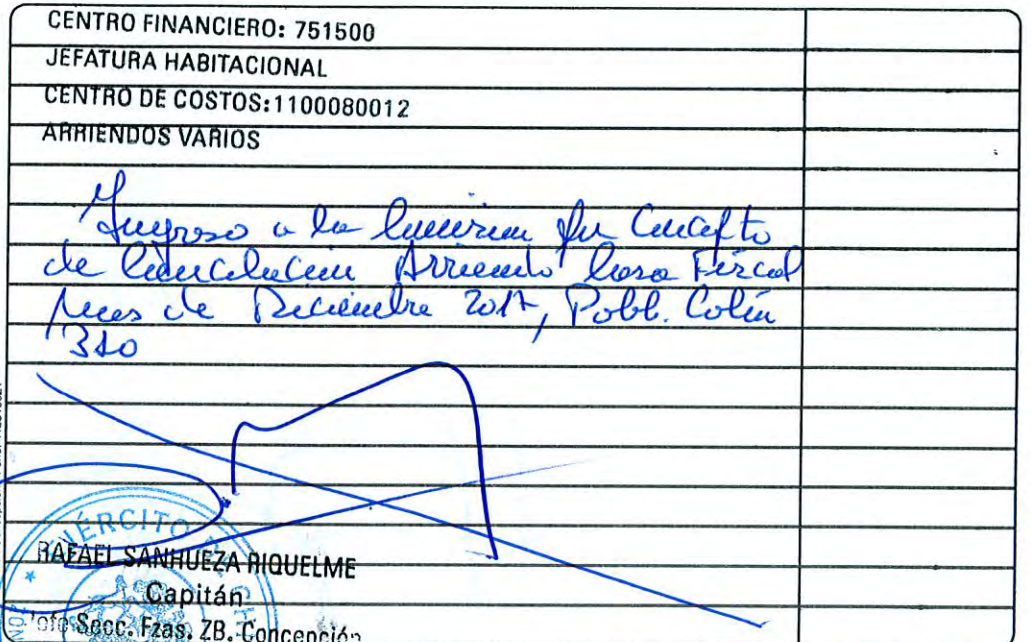 CENTRO FINANCIERO: 751500
JEFATURA HABITACIONAL
CENTRO DE COSTOS:1100080012
ARRIENDOS VARIOS
Ingreso a la por Concepto
de Cancelación Arriendo Casa Fiscal
Mes de Diciembre 2017, Pobl. Colín
310
EJÉRCITO DE CH
RAFAEL SANHUEZA RIQUELME
Capitán
Jefe Secc. Fzas. ZB. Concepción